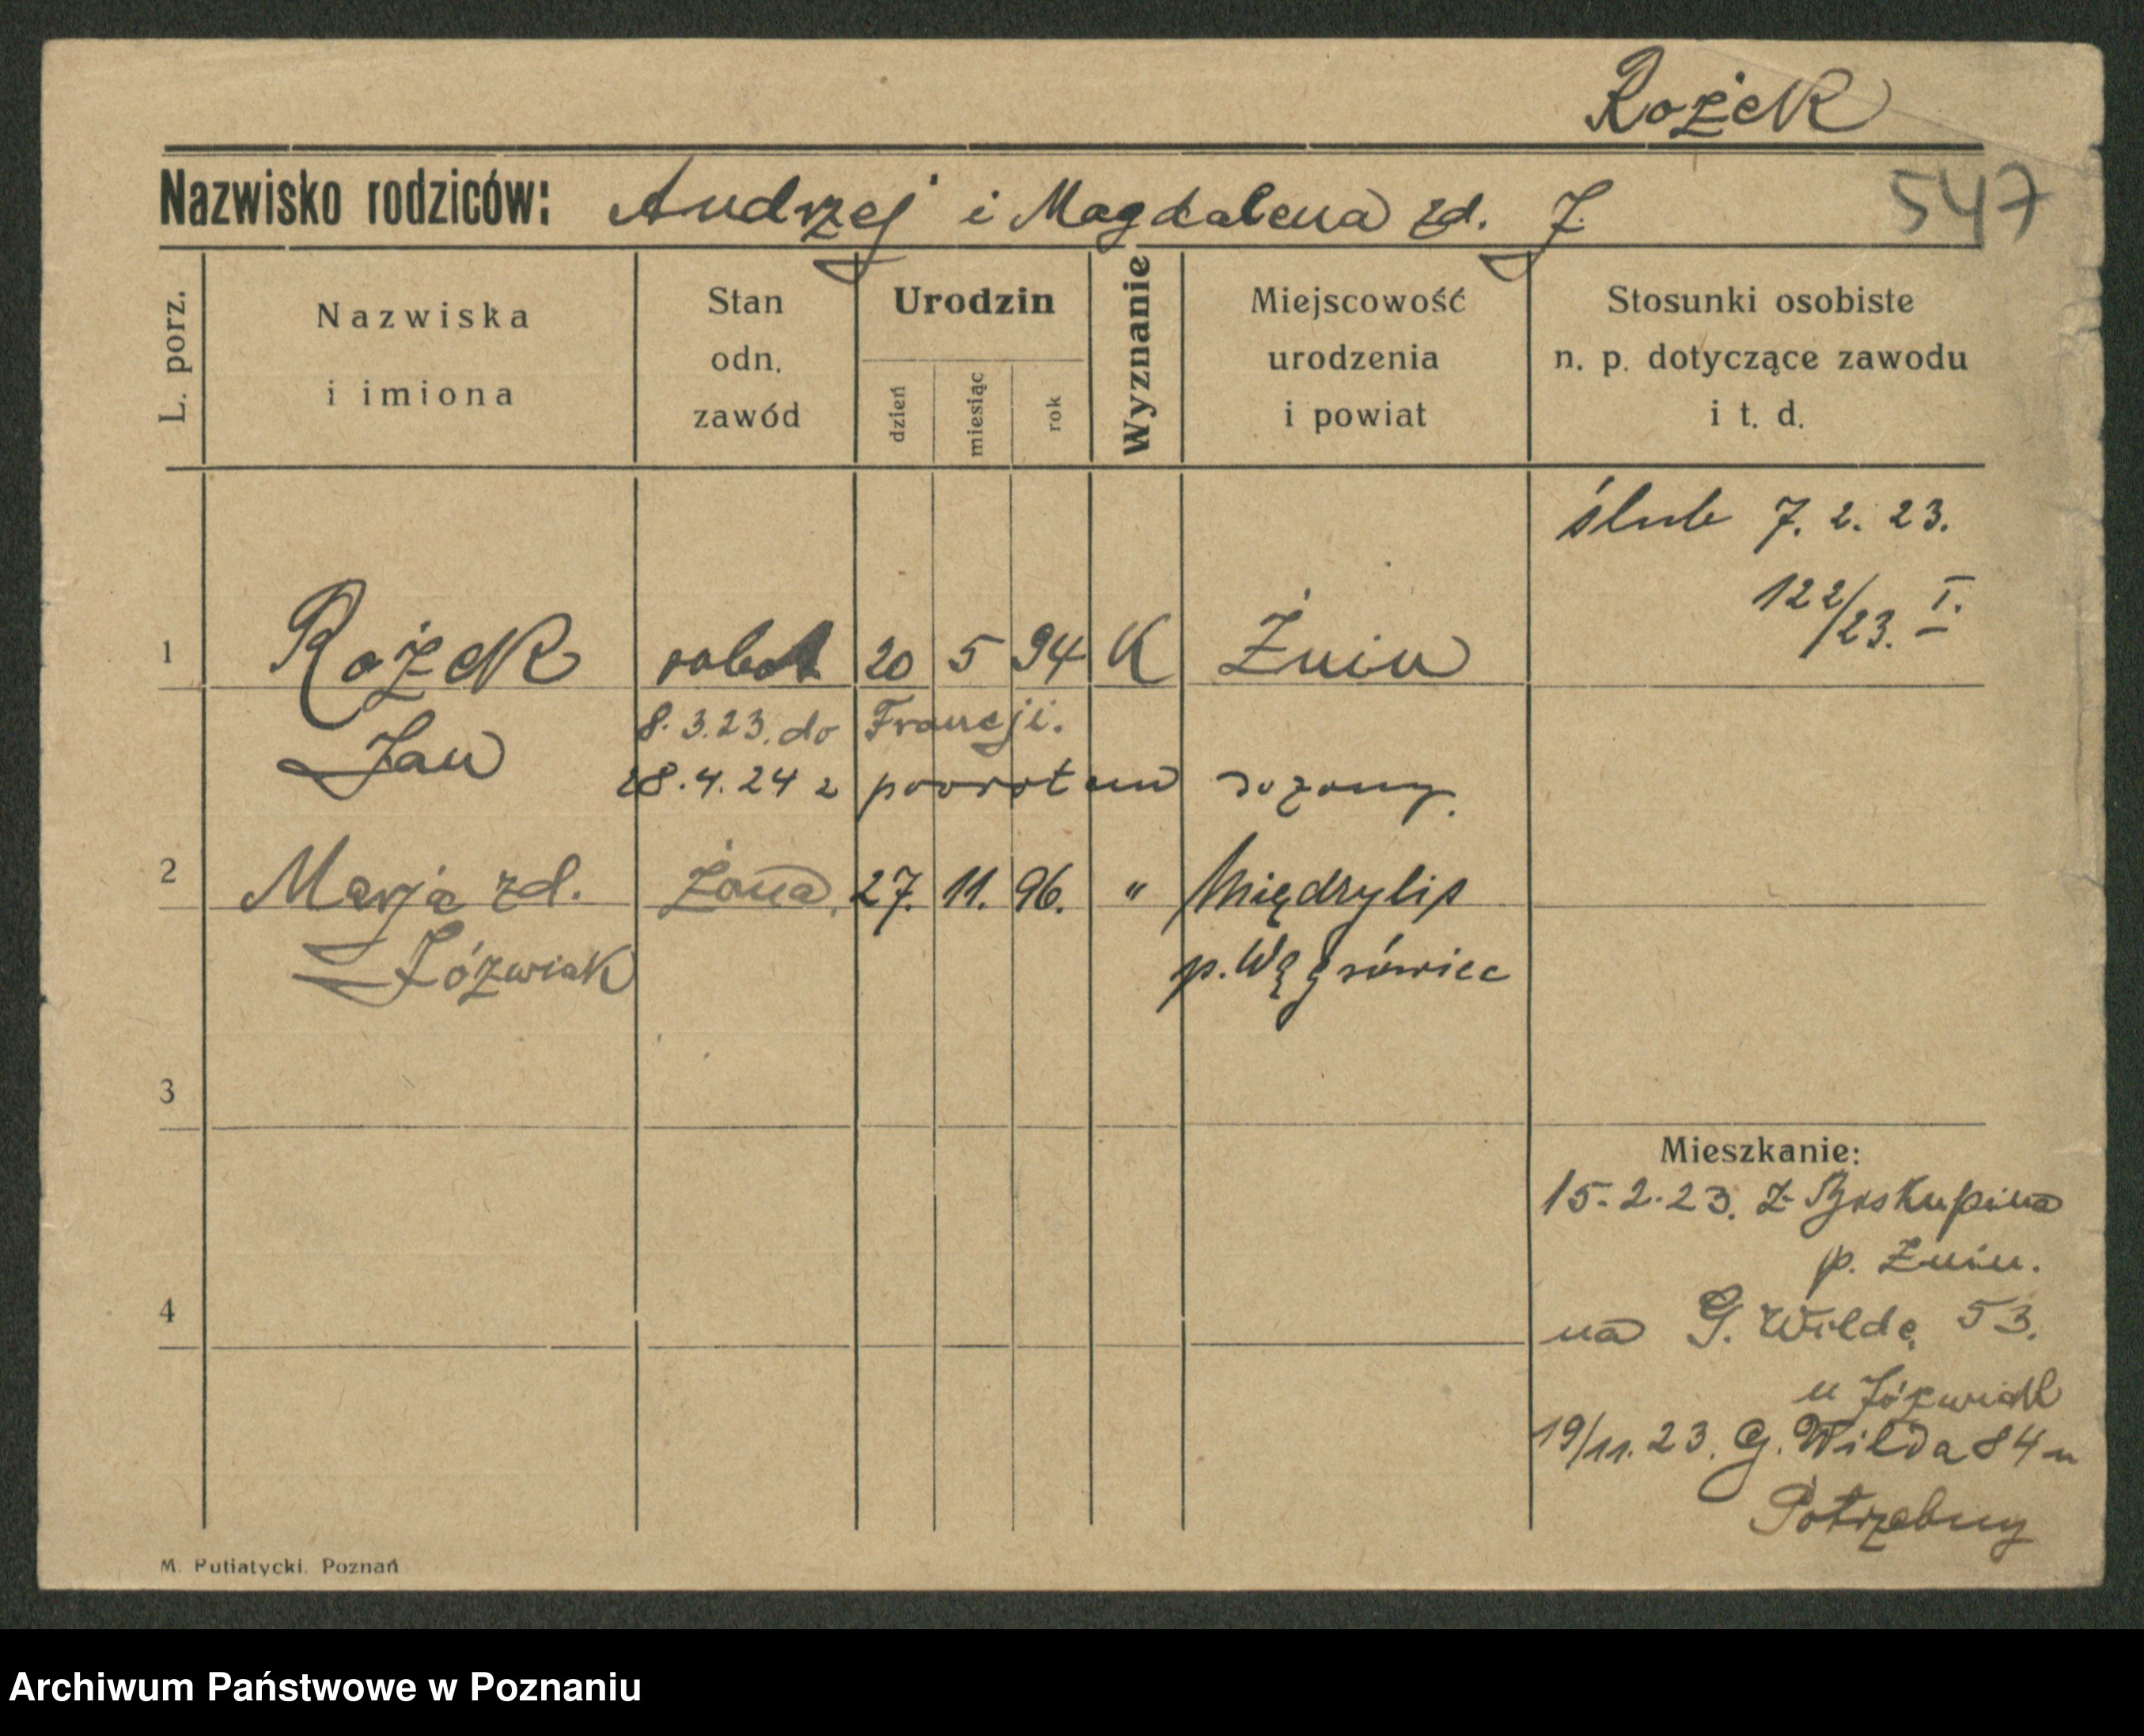 Rożek
547
Nazwisko rodziców: Andrzej i Magdalena zd. J.
L. porz.
Nazwiska
i imiona
Stan
odn.
zawód
Urodzin
dzień
miesiąc
rok
Wyznanie
Miejscowość
urodzenia
i powiat
Stosunki osobiste
n. p. dotyczące zawodu
i t. d.
ślub 7. 2. 23.
122/23. I.
1 Rożek robot 20 5 94 K Żnin
Jan
8. 3. 23. do Francji.
28. 4. 24 z powrotem do żony.
2 Marja zd. żona. 27. 11. 96. " Międzylis
Józwiak p. Wągrówiec
3
Mieszkanie:
15. 2. 23. z Byskupina
p. Żnin.
4
na G. Wildę 53.
u Józwiak
19/11. 23. G. Wilda 84 u
Potrzebny
M. Putiatycki. Poznań
Archiwum Państwowe w Poznaniu